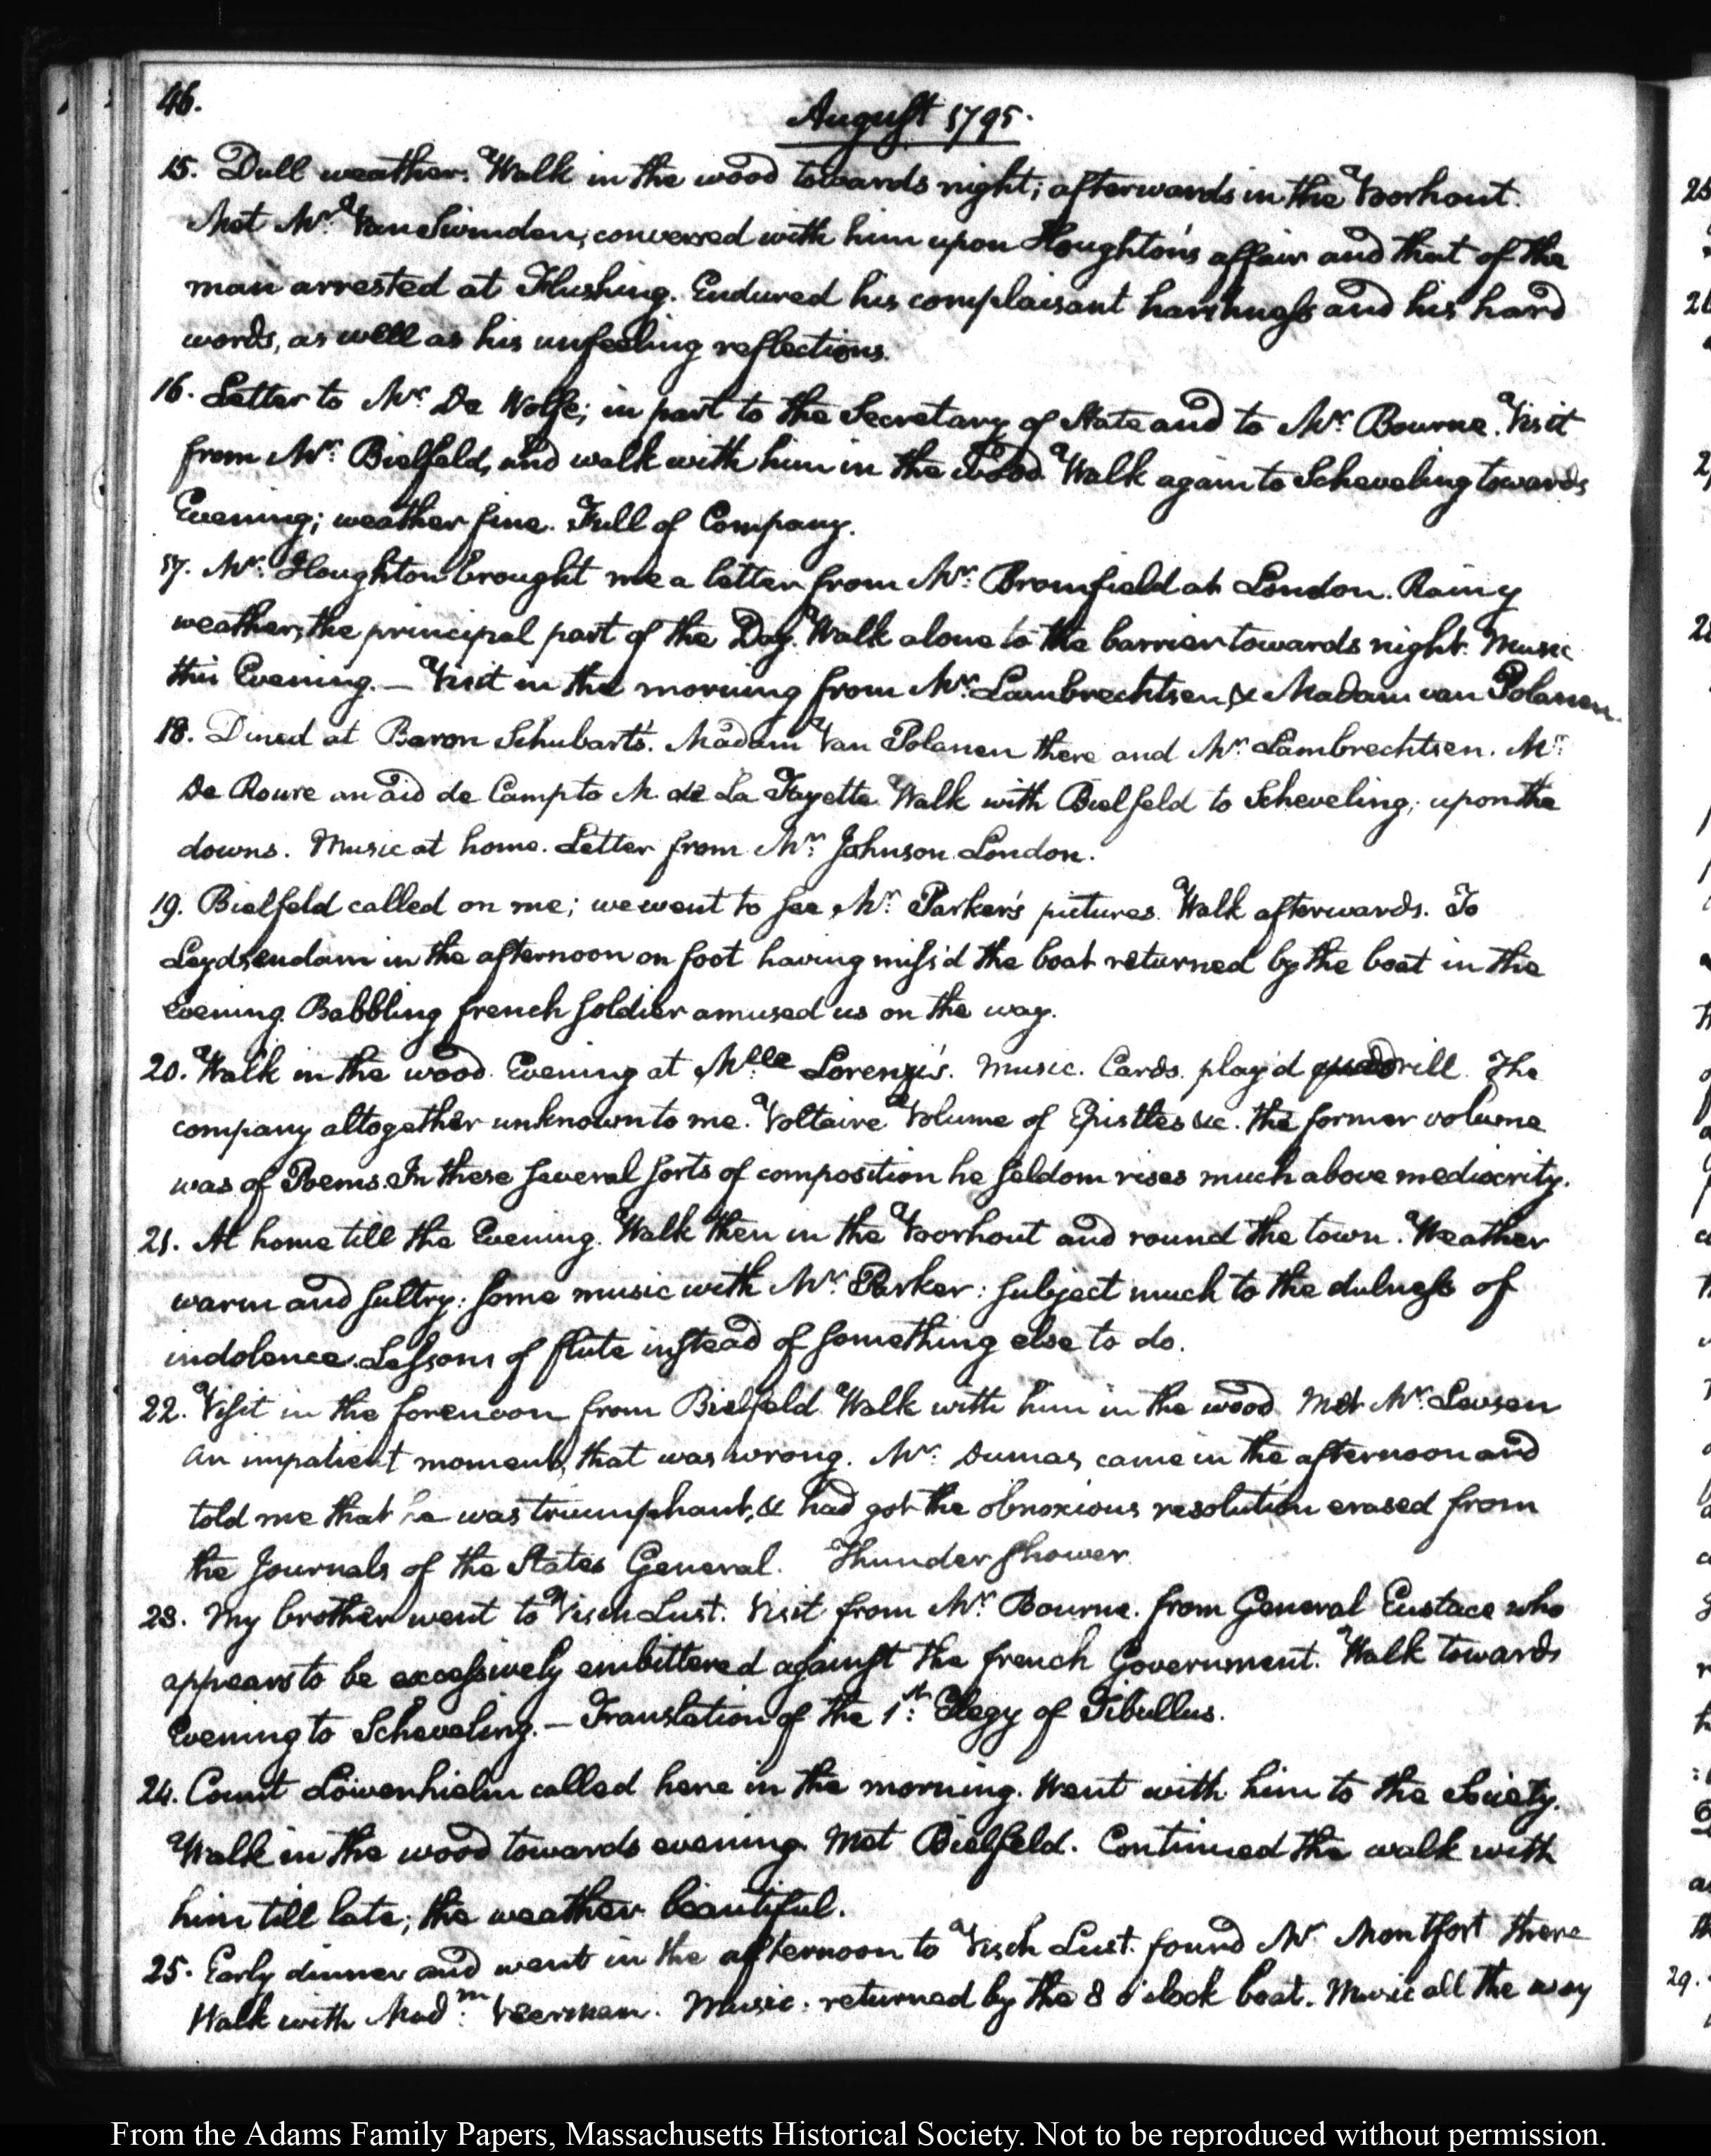 46.
August 1795.
15. Dull weather. Walk in the wood towards night; afterwards in the Voorhout.
Met Mr. Van Swinden, conversed with him upon Houghton's affair and that of the
man arrested at Flushing. Endured his complaisant harshness and his hard
words, as well as his unfeeling reflections.
16. Letter to Mr. De Wolfe; in part to the Secretary of State and to Mr. Bourne. Visit
from Mr. Bielfeld, and walk with him in the wood. Walk again to Scheveling towards
Evening; weather fine. Full of Company.
17. Mr. Houghton brought me a letter from Mr. Bromfield at London. Rainy
weather, the principal part of the Day. Walk alone to the barrier towards night. Music
this Evening. — Visit in the morning from Mr. Lambrechtsen & Madam van Polanen.
18. Dined at Baron Schubart's. Madam Van Polanen there and Mr. Lambrechtsen. Mr.
De Roure an aid de Camp to M. de La Fayette. Walk with Bielfeld to Scheveling; upon the
downs. Music at home. Letter from Mr. Johnson. London.
19. Bielfeld called on me; we went to see Mr. Parker's pictures. Walk afterwards. To
Leydsendam in the afternoon on foot having miss'd the boat returned by the boat in the
Evening. Babbling french soldier amused us on the way.
20. Walk in the wood. Evening at Mlle. Lorenzi's. Music. Cards. play'd quadrill. The
company altogether unknown to me. Voltaire Volume of Epistles &c. the former volume
was of Poems. In these several sorts of composition he seldom rises much above mediocrity.
21. At home till the Evening. Walk then in the Voorhout and round the town. Weather
warm and sultry: some music with Mr. Parker: subject much to the dulness of
indolence. Lessons of flute instead of something else to do.
22. Visit in the forenoon from Bielfeld. Walk with him in the wood. Met Mr. Levsen
an impatient moment, that was wrong. Mr. Dumas came in the afternoon and
told me that he was triumphant, & had got the obnoxious resolution erased from
the Journals of the States General. Thunder shower
23. My brother went to Visch Lust. Visit from Mr. Bourne. from General Eustace who
appears to be excessively embittered against the french Government. Walk towards
Evening to Scheveling. — Translation of the 1st. Elegy of Tibullus.
24. Count Löwenhielm called here in the morning. Went with him to the Society.
Walk in the wood towards evening. Met Bielfeld. Continued the walk with
him till late; the weather beautiful.
25. Early dinner and went in the afternoon to Visch Lust. found Mr. Montfort there
Walk with Madm. Veerman. Music. returned by the 8 o'clock boat. Music all the way
29.
From the Adams Family Papers, Massachusetts Historical Society. Not to be reproduced without permission.